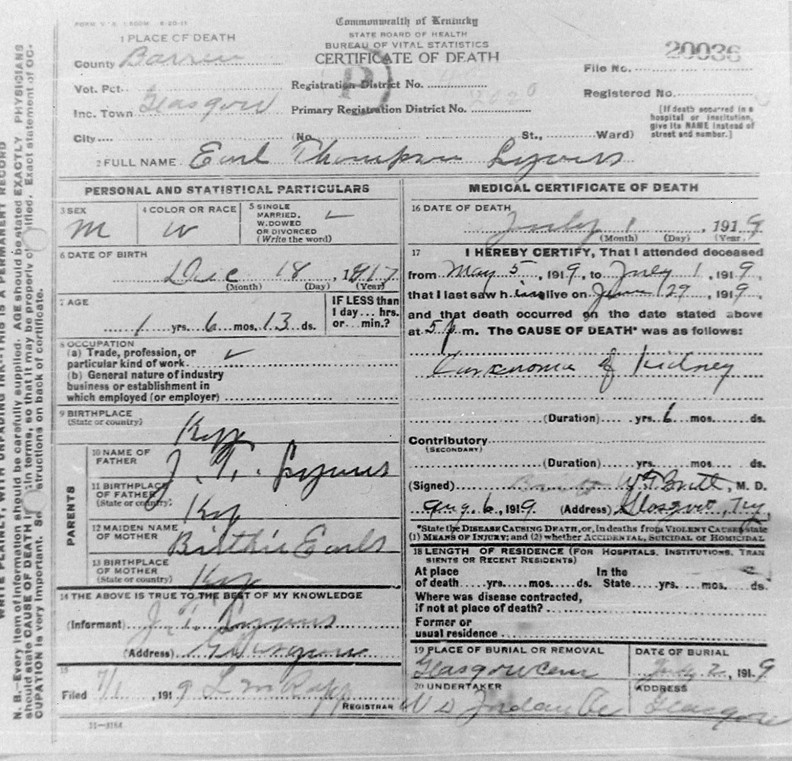 Commonwealth of Kentucky
STATE BOARD OF HEALTH
BUREAU OF VITAL STATISTICS
CERTIFICATE OF DEATH
1 PLACE OF DEATH
County Barren
Vot. Pct.
Inc. Town Glasgow
City (No. St., Ward)
Registration District No.
Primary Registration District No.
20036
File No.
Registered No.
[If death occurred in a
hospital or institution,
give its NAME instead of
street and number.]
2 FULL NAME Earl Thompson Lyons
PERSONAL AND STATISTICAL PARTICULARS
3 SEX M
4 COLOR OR RACE W
5 SINGLE
MARRIED,
WIDOWED
OR DIVORCED
(Write the word)
6 DATE OF BIRTH
Dec 18 1917
(Month) (Day) (Year)
7 AGE
1 yrs. 6 mos. 13 ds.
IF LESS than
1 day... hrs.
or... min.?
8 OCCUPATION
(a) Trade, profession, or
particular kind of work
(b) General nature of industry
business or establishment in
which employed (or employer)
9 BIRTHPLACE
(State or country) Ky
PARENTS
10 NAME OF
FATHER J. T. Lyons
11 BIRTHPLACE
OF FATHER
(State or country) Ky
12 MAIDEN NAME
OF MOTHER Birthie Earls
13 BIRTHPLACE
OF MOTHER
(State or country) Ky
14 THE ABOVE IS TRUE TO THE BEST OF MY KNOWLEDGE
(Informant) J. T. Lyons
(Address) Glasgow
15
Filed 7/1, 1919 REGISTRAR
MEDICAL CERTIFICATE OF DEATH
16 DATE OF DEATH
July 1 1919
(Month) (Day) (Year)
17 I HEREBY CERTIFY, That I attended deceased
from May 5, 1919, to July 1, 1919,
that I last saw him alive on June 29, 1919,
and that death occurred on the date stated above
at 5 p.m. The CAUSE OF DEATH* was as follows:
Carcinoma of Kidney
(Duration) yrs. 6 mos. ds.
Contributory
(SECONDARY)
(Duration) yrs. mos. ds.
(Signed) Britt, M. D.
Aug. 6, 1919 (Address) Glasgow, Ky
*State the DISEASE CAUSING DEATH, or, in deaths from VIOLENT CAUSES state
(1) MEANS OF INJURY; and (2) whether ACCIDENTAL, SUICIDAL or HOMICIDAL
18 LENGTH OF RESIDENCE (FOR HOSPITALS, INSTITUTIONS, TRAN
SIENTS OR RECENT RESIDENTS)
At place In the
of death yrs. mos. ds. State yrs. mos. ds.
Where was disease contracted,
if not at place of death?
Former or
usual residence
19 PLACE OF BURIAL OR REMOVAL
Glasgow cem
DATE OF BURIAL
July 2, 1919
20 UNDERTAKER
ADDRESS
Glasgow
11-3184
N. B.—Every item of information should be carefully supplied. AGE should be stated EXACTLY. PHYSICIANS